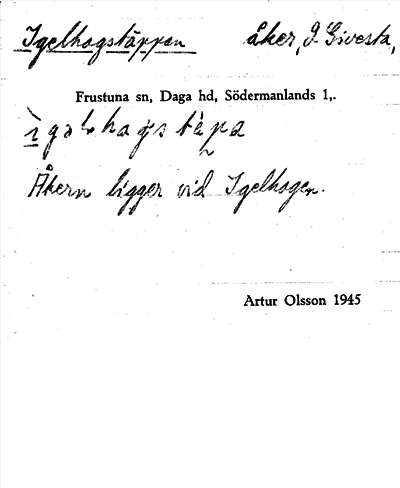 Igelhagstäppan åker, I. Givesta,
Frustuna sn, Daga hd, Södermanlands l,.
Åkern ligger vid Igelhagen.
Artur Olsson 1945